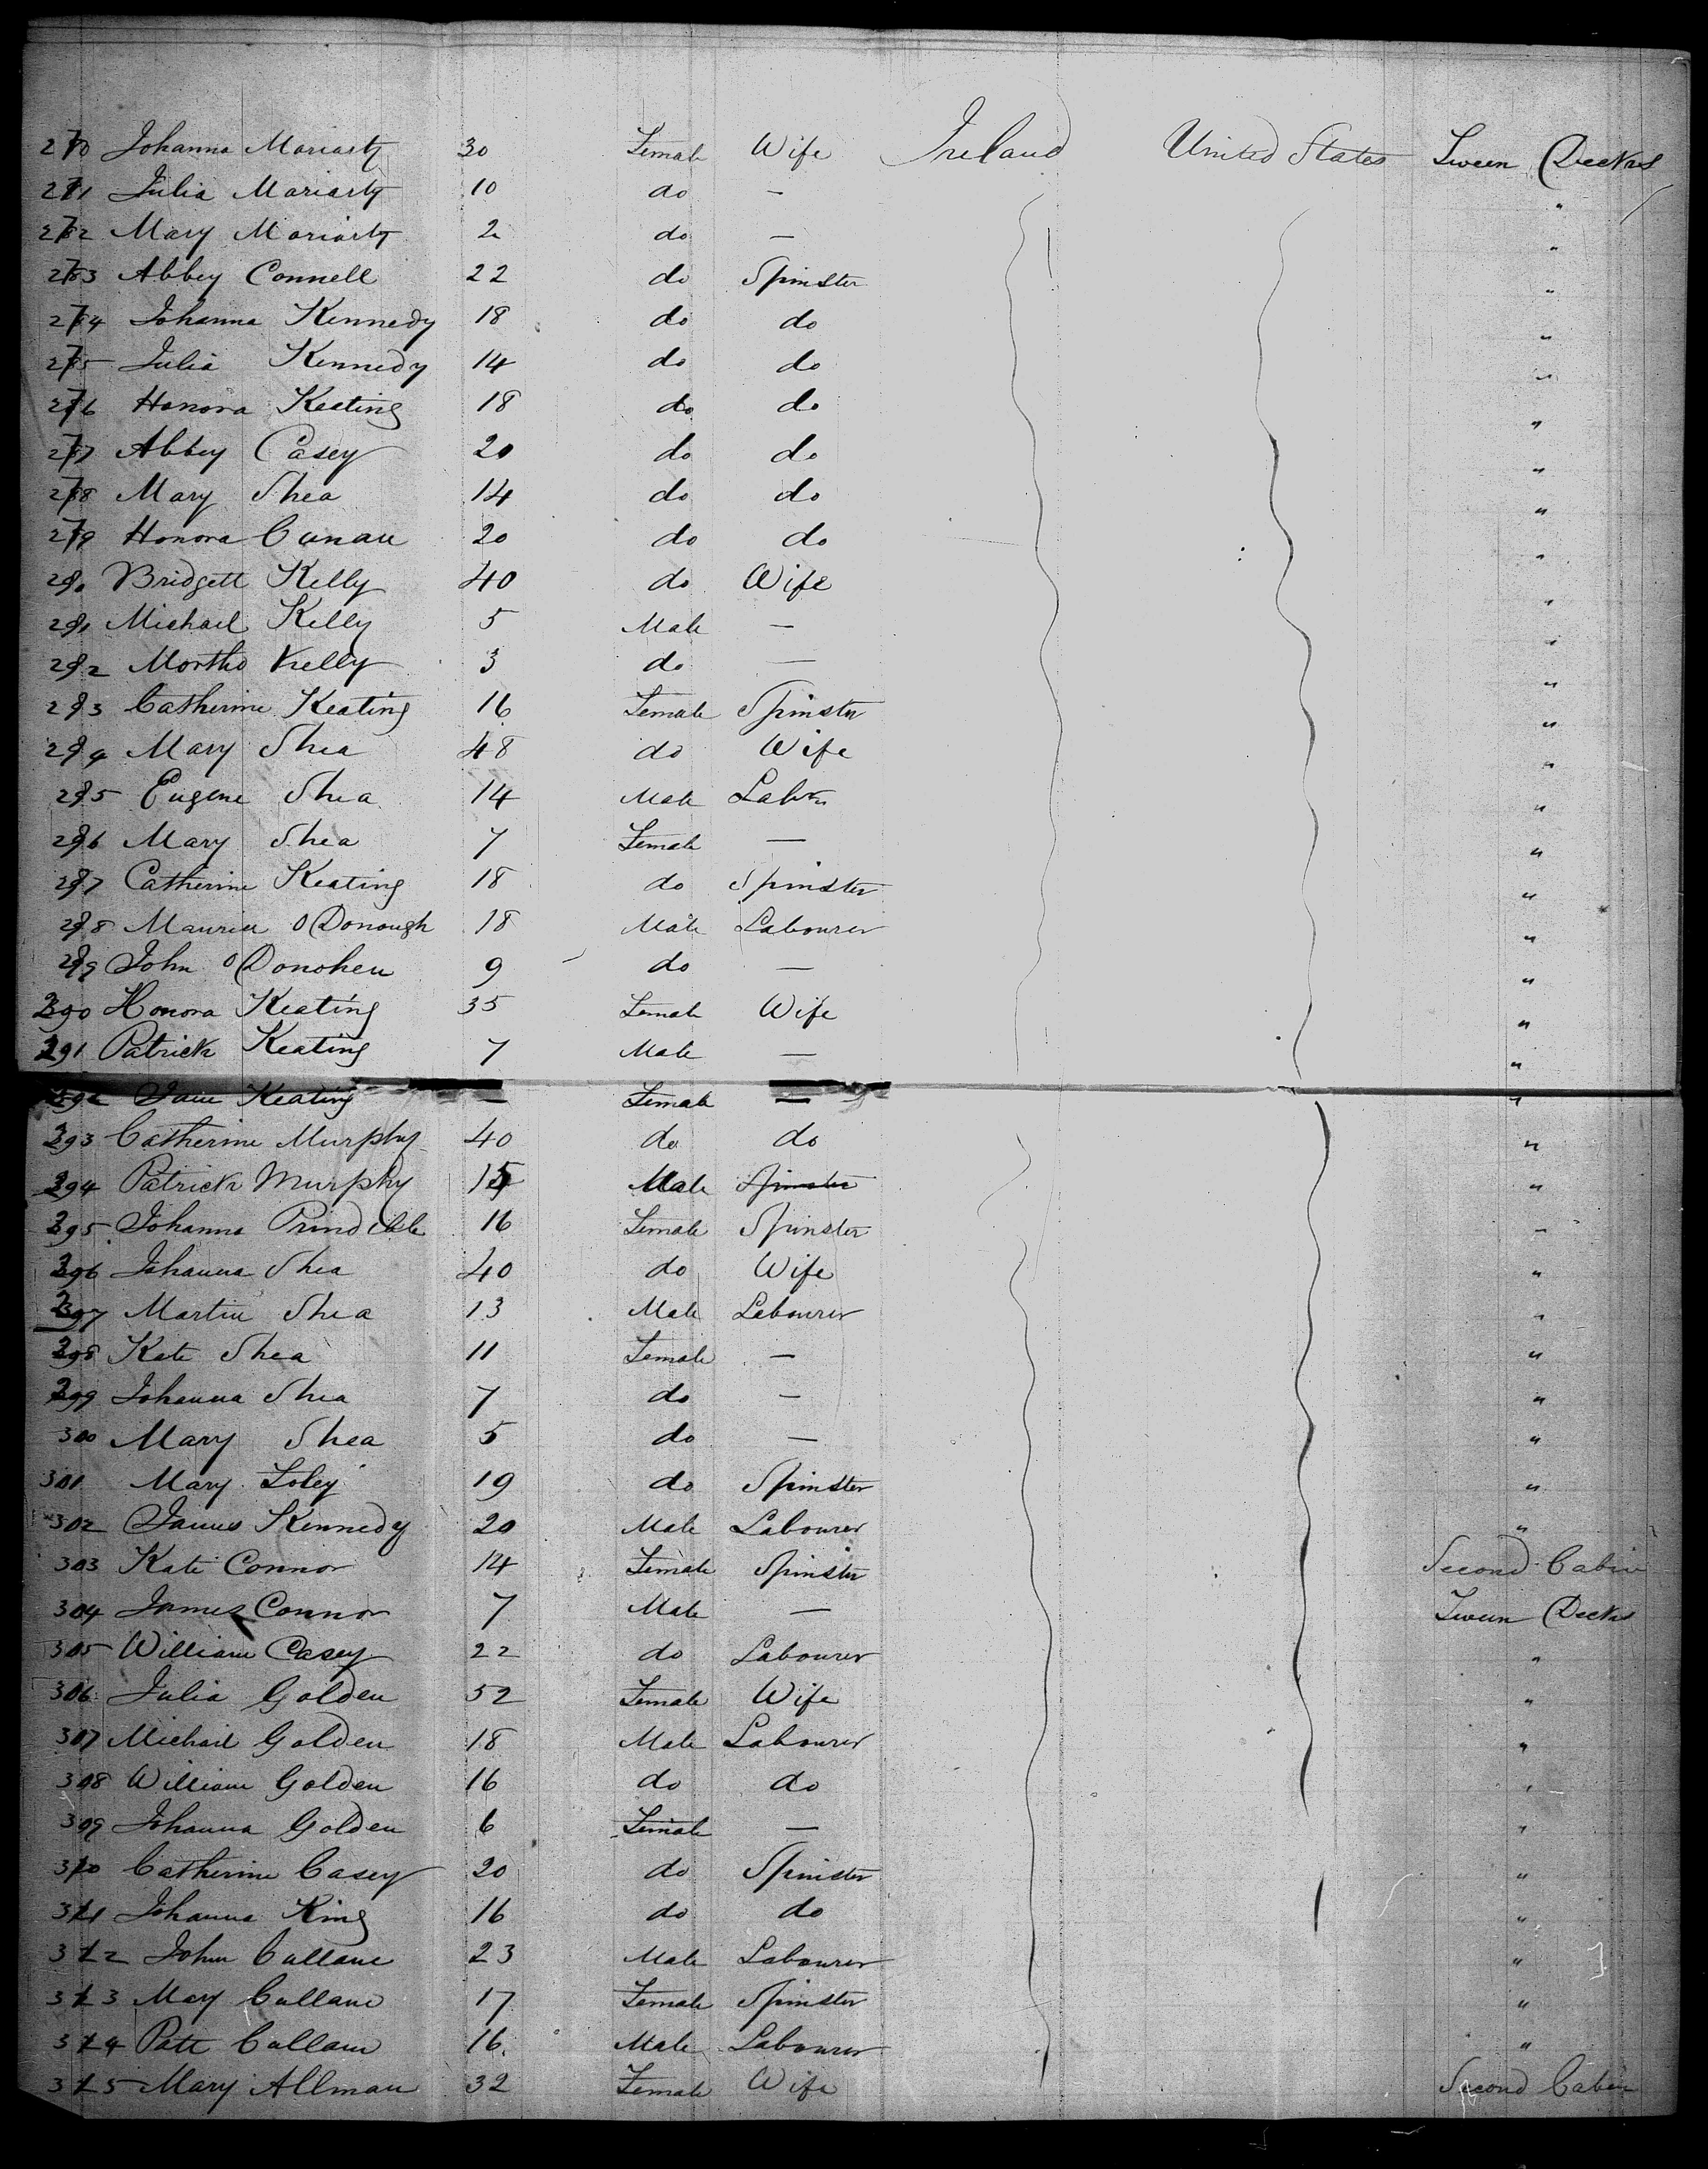 270 Johanna Moriarty 30 Female Wife Ireland United States Tween Decks
271 Julia Moriarty 10 do — "
272 Mary Moriarty 2 do — "
273 Abbey Connell 22 do Spinster "
274 Johanna Kennedy 18 do do "
275 Julia Kennedy 14 do do "
276 Honora Keating 18 do do "
277 Abbey Casey 20 do do "
278 Mary Shea 14 do do "
279 Honora 20 do do "
280 Bridgett Kelly 40 do Wife "
281 Michael Kelly 5 Male — "
282 Kelly 3 do — "
283 Catherine Keating 16 Female Spinster "
284 Mary Shea 48 do Wife "
285 Eugene Shea 14 Male Labr "
286 Mary Shea 7 Female — "
287 Catherine Keating 18 do Spinster "
288 Maurice O Donough 18 Male Labourer "
289 John O Donohue 9 do — "
290 Honora Keating 35 Female Wife "
291 Patrick Keating 7 Male — "
292 Jane Keating — Female — "
293 Catherine Murphy 40 do do "
294 Patrick Murphy 15 Male Spinster "
295 Johanna Prindible 16 Female Spinster "
296 Johanna Shea 40 do Wife "
297 Martin Shea 13 Male Labourer "
298 Kate Shea 11 Female — "
299 Johanna Shea 7 do — "
300 Mary Shea 5 do — "
301 Mary Foley 19 do Spinster "
302 James Kennedy 20 Male Labourer "
303 Kate Connor 14 Female Spinster Second Cabin
304 James Connor 7 Male — Tween Decks
305 William Casey 22 do Labourer "
306 Julia Golden 52 Female Wife "
307 Michael Golden 18 Male Labourer "
308 William Golden 16 do do "
309 Johanna Golden 6 Female — "
310 Catherine Casey 20 do Spinster "
311 Johanna King 16 do do "
312 John Cullane 23 Male Labourer "
313 Mary Cullane 17 Female Spinster "
314 Patt Cullane 16 Male Labourer "
315 Mary Allman 32 Female Wife Second Cabin